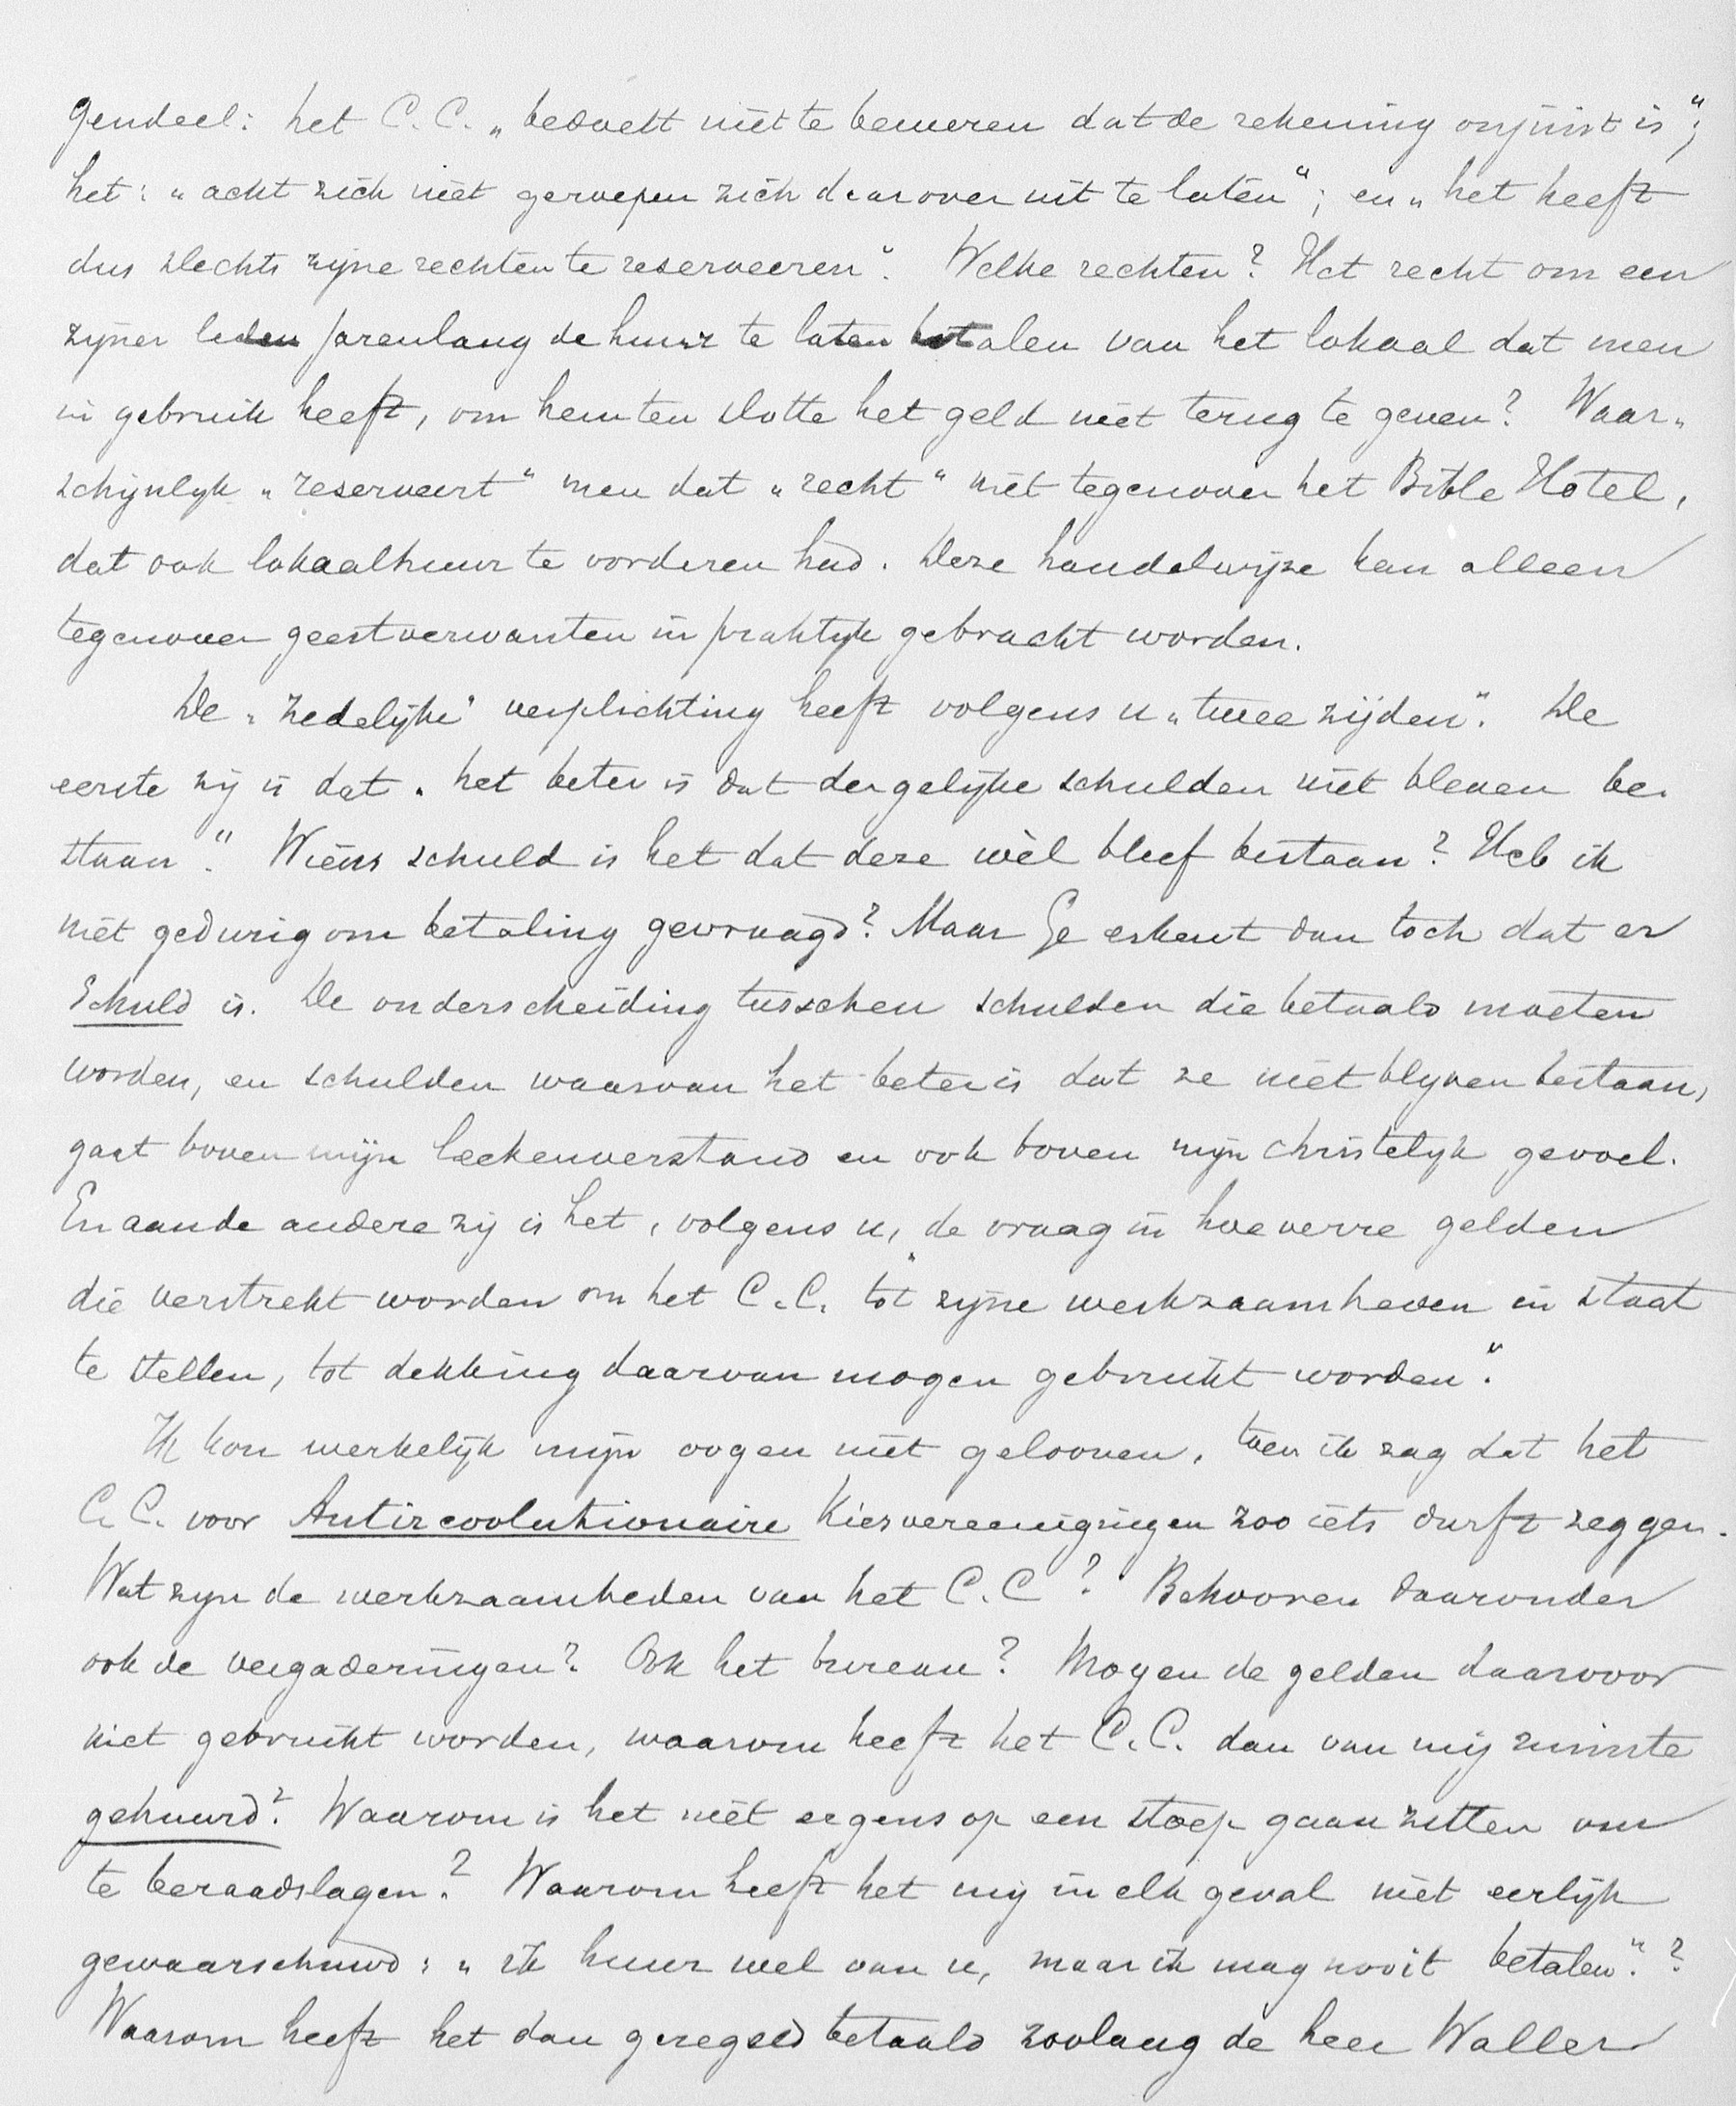 gendeel: het C.C. „bedoelt niet te beweren dat de rekening onjuist is“;
het: „acht zich niet geroepen zich daarover uit te laten“; en „het heeft
dus slechts zijne rechten te reserveeren“. Welke rechten? Het recht om een
zijner leden jarenlang de huur te laten betalen van het lokaal dat men
in gebruik heeft, om hem ten slotte het geld niet terug te geven? Waar„
schijnlijk „reserveert“ men dat „recht“ niet tegenover het Bible Hotel,
dat ook lokaalhuur te vorderen had. Deze handelwijze kan alleen
tegenover geestverwanten in praktijk gebracht worden.
De „zedelijke“ verplichting heeft volgens u „twee zijden“. De
eerste zij is dat „het beter is dat dergelijke schulden niet bleven be„
staan“. Wiens schuld is het dat deze wèl bleef bestaan? Heb ik
niet gedurig om betaling gevraagd? Maar Ge erkent dan toch dat er
schuld is. De onderscheiding tusschen schulden die betaald moeten
worden, en schulden waarvan het beter is dat ze niet blijven bestaan,
gaat boven mijn leekenverstand en ook boven mijn christelijk gevoel.
En aan de andere zij is het, volgens u, de vraag in hoeverre gelden
die verstrekt worden om het C.C. „tot zijne werkzaamheden in staat
te stellen, tot dekking daarvan mogen gebruikt worden“.
Ik kon werkelijk mijn oogen niet gelooven, toen ik zag dat het
C.C. voor Antirevolutionaire Kiesvereenigingen zoo iets durft zeggen.
Wat zijn de werkzaamheden van het C.C? Behooren daaronder
ook de vergaderingen? Ook het bureau? Mogen de gelden daarvoor
niet gebruikt worden, waarom heeft het C.C. dan van mij ruimte
gehuurd? Waarom is het niet ergens op een stoep gaan zitten om
te beraadslagen? Waarom heeft het mij in elk geval niet eerlijk
gewaarschuwd: „ik huur wel van u, maar ik mag nooit betalen“.?
Waarom heeft het dan geregeld betaald zoolang de heer Waller